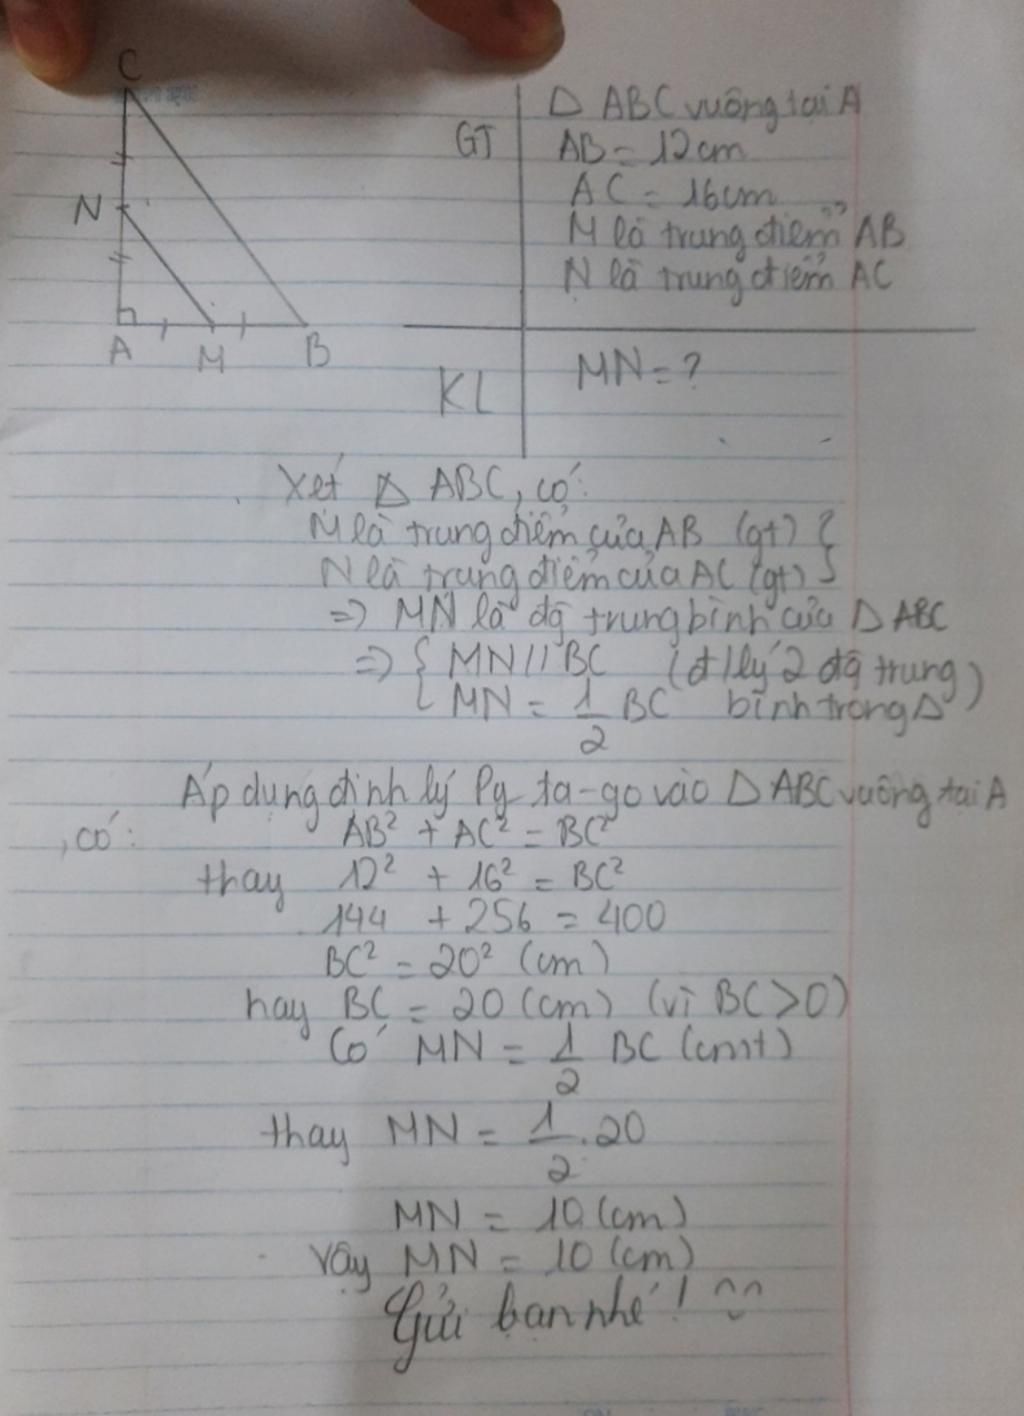 C
N
A M B
GT
Δ ABC vuông tại A
AB = 12cm
AC = 16cm
M là trung điểm AB
N là trung điểm AC
KL
MN = ?
Xét Δ ABC, có:
M là trung điểm của AB (gt) }
N là trung điểm của AC (gt) }
=> MN là đg trung bình của Δ ABC
=> { MN // BC (đ/lý 2 đg trung
{ MN = 1/2 BC bình trong Δ)
Áp dụng định lý Py-ta-go vào Δ ABC vuông tại A
, có: AB² + AC² = BC²
thay 12² + 16² = BC²
144 + 256 = 400
BC² = 20² (cm)
hay BC = 20 (cm) (vì BC > 0)
Có MN = 1/2 BC (cmt)
thay MN = 1/2 . 20
MN = 10 (cm)
Vậy MN = 10 (cm)
Gửi bạn nhé! ^^